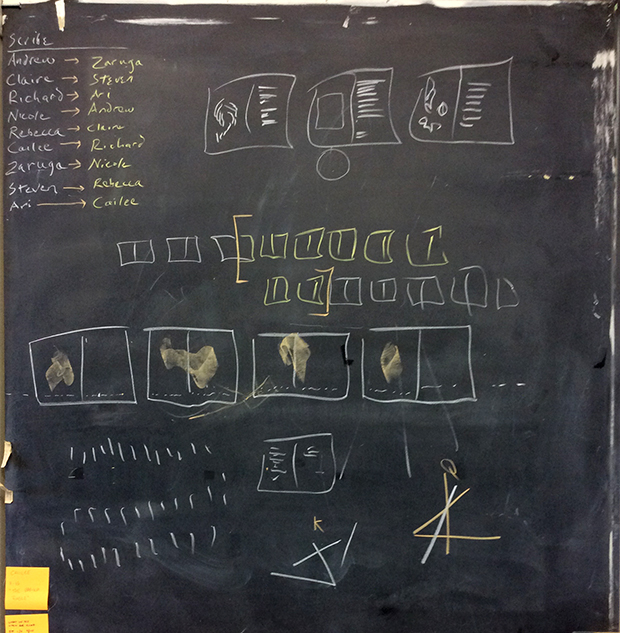 Scribe
Andrew → Zaruga
Claire → Steven
Richard → Ari
Nicole → Andrew
Rebecca → Claire
Cailee → Richard
Zaruga → Nicole
Steven → Rebecca
Ari → Cailee
K